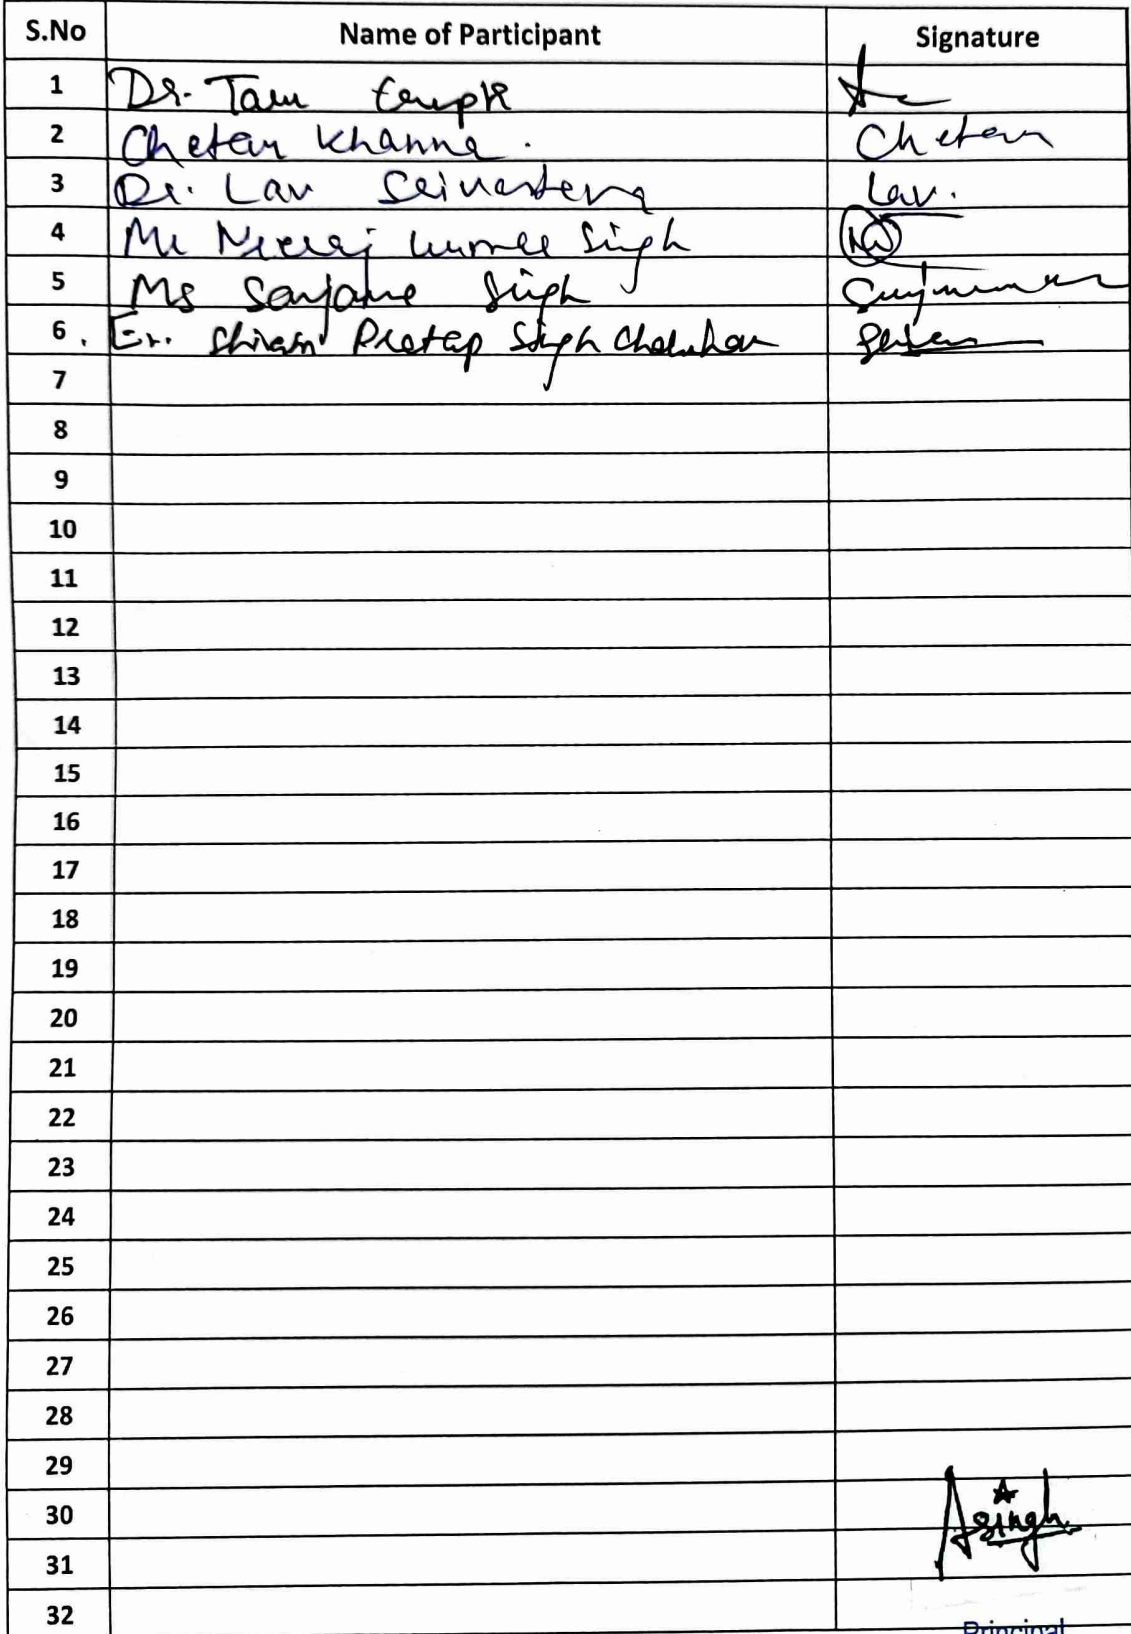 S.No Name of Participant Signature
1 Dr. Tanu
2 Chetan Khanna. Chetan
3 Dr. Lav Srivastava Lav.
4 Mr Neeraj Kumar Singh
5 Ms Sanjana Singh
6. Er. Shivam Pratap Singh Chauhan
7
8
9
10
11
12
13
14
15
16
17
18
19
20
21
22
23
24
25
26
27
28
29
30 Asingh
31
32
Principal